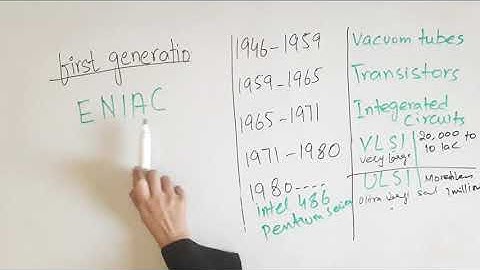 first generatio
ENIAC
1946-1959
Vacuom tubes
1959-1965
Transistors
1965-1971
Integerated
Circuits
1971-1980
VLSI
very large
20,000 to
10 lac
1980----
Intel 486
Pentium
ULSI
Ultra very
1 million